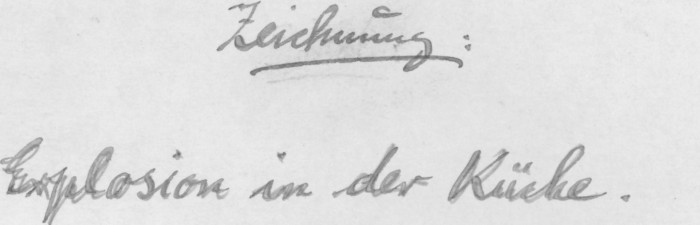 Zeichnung:
Explosion in der Küche.